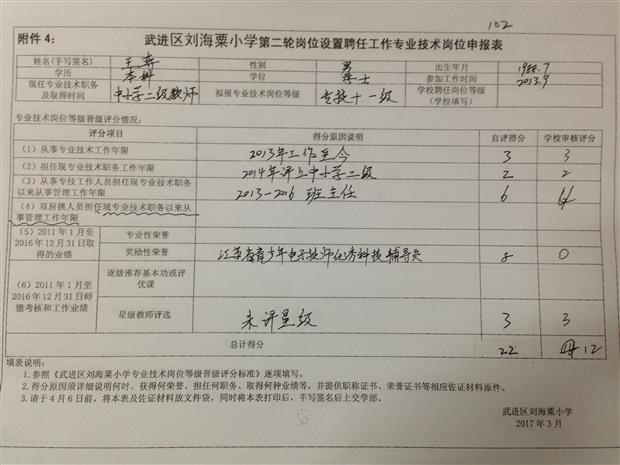 102
附件4： 武进区刘海粟小学第二轮岗位设置聘任工作专业技术岗位申报表
姓名(手写签名) 性别 男 出生年月 1988.7
学历 本科 学位 学士 参加工作时间 2013.9
现任专业技术职务及取得时间 中小学二级教师 拟报专业技术岗位等级 专技十一级 学校聘任岗位等级(学校填写)
专业技术岗位等级晋级评分情况:
评分项目 得分原因说明 自评得分 学校审核评分
(1) 从事专业技术工作年限 2013年工作至今 3 3
(2) 担任现专业技术职务工作年限 2014年评上中小学二级 2 2
(3) 从事专技工作人员担任现专业技术职务以来从事管理工作年限 2013-2016 班主任 6 4
(4) 双肩挑人员担任现专业技术职务以来从事管理工作年限
(5) 2011年1月至2016年12月31日取得的业绩 专业性荣誉
奖励性荣誉 江苏省青少年电子技师优秀科技辅导员 8 0
(6) 2011年1月至2016年12月31日师德考核和工作业绩 逐级推荐基本功或评优课
星级教师评选 未评星级 3 3
总计得分 22 12
填表说明:
1.参照《武进区刘海粟小学专业技术岗位等级晋级评分标准》逐项填写。
2.得分原因须详细说明何时、获得何荣誉、担任何职务、取得何种业绩等，并提供职称证书、荣誉证书等相应佐证材料原件。
3.请于4月6日前，将本表及佐证材料放文件袋，同时将本表打印后，手写签名后上交学部。
武进区刘海粟小学
2017年3月